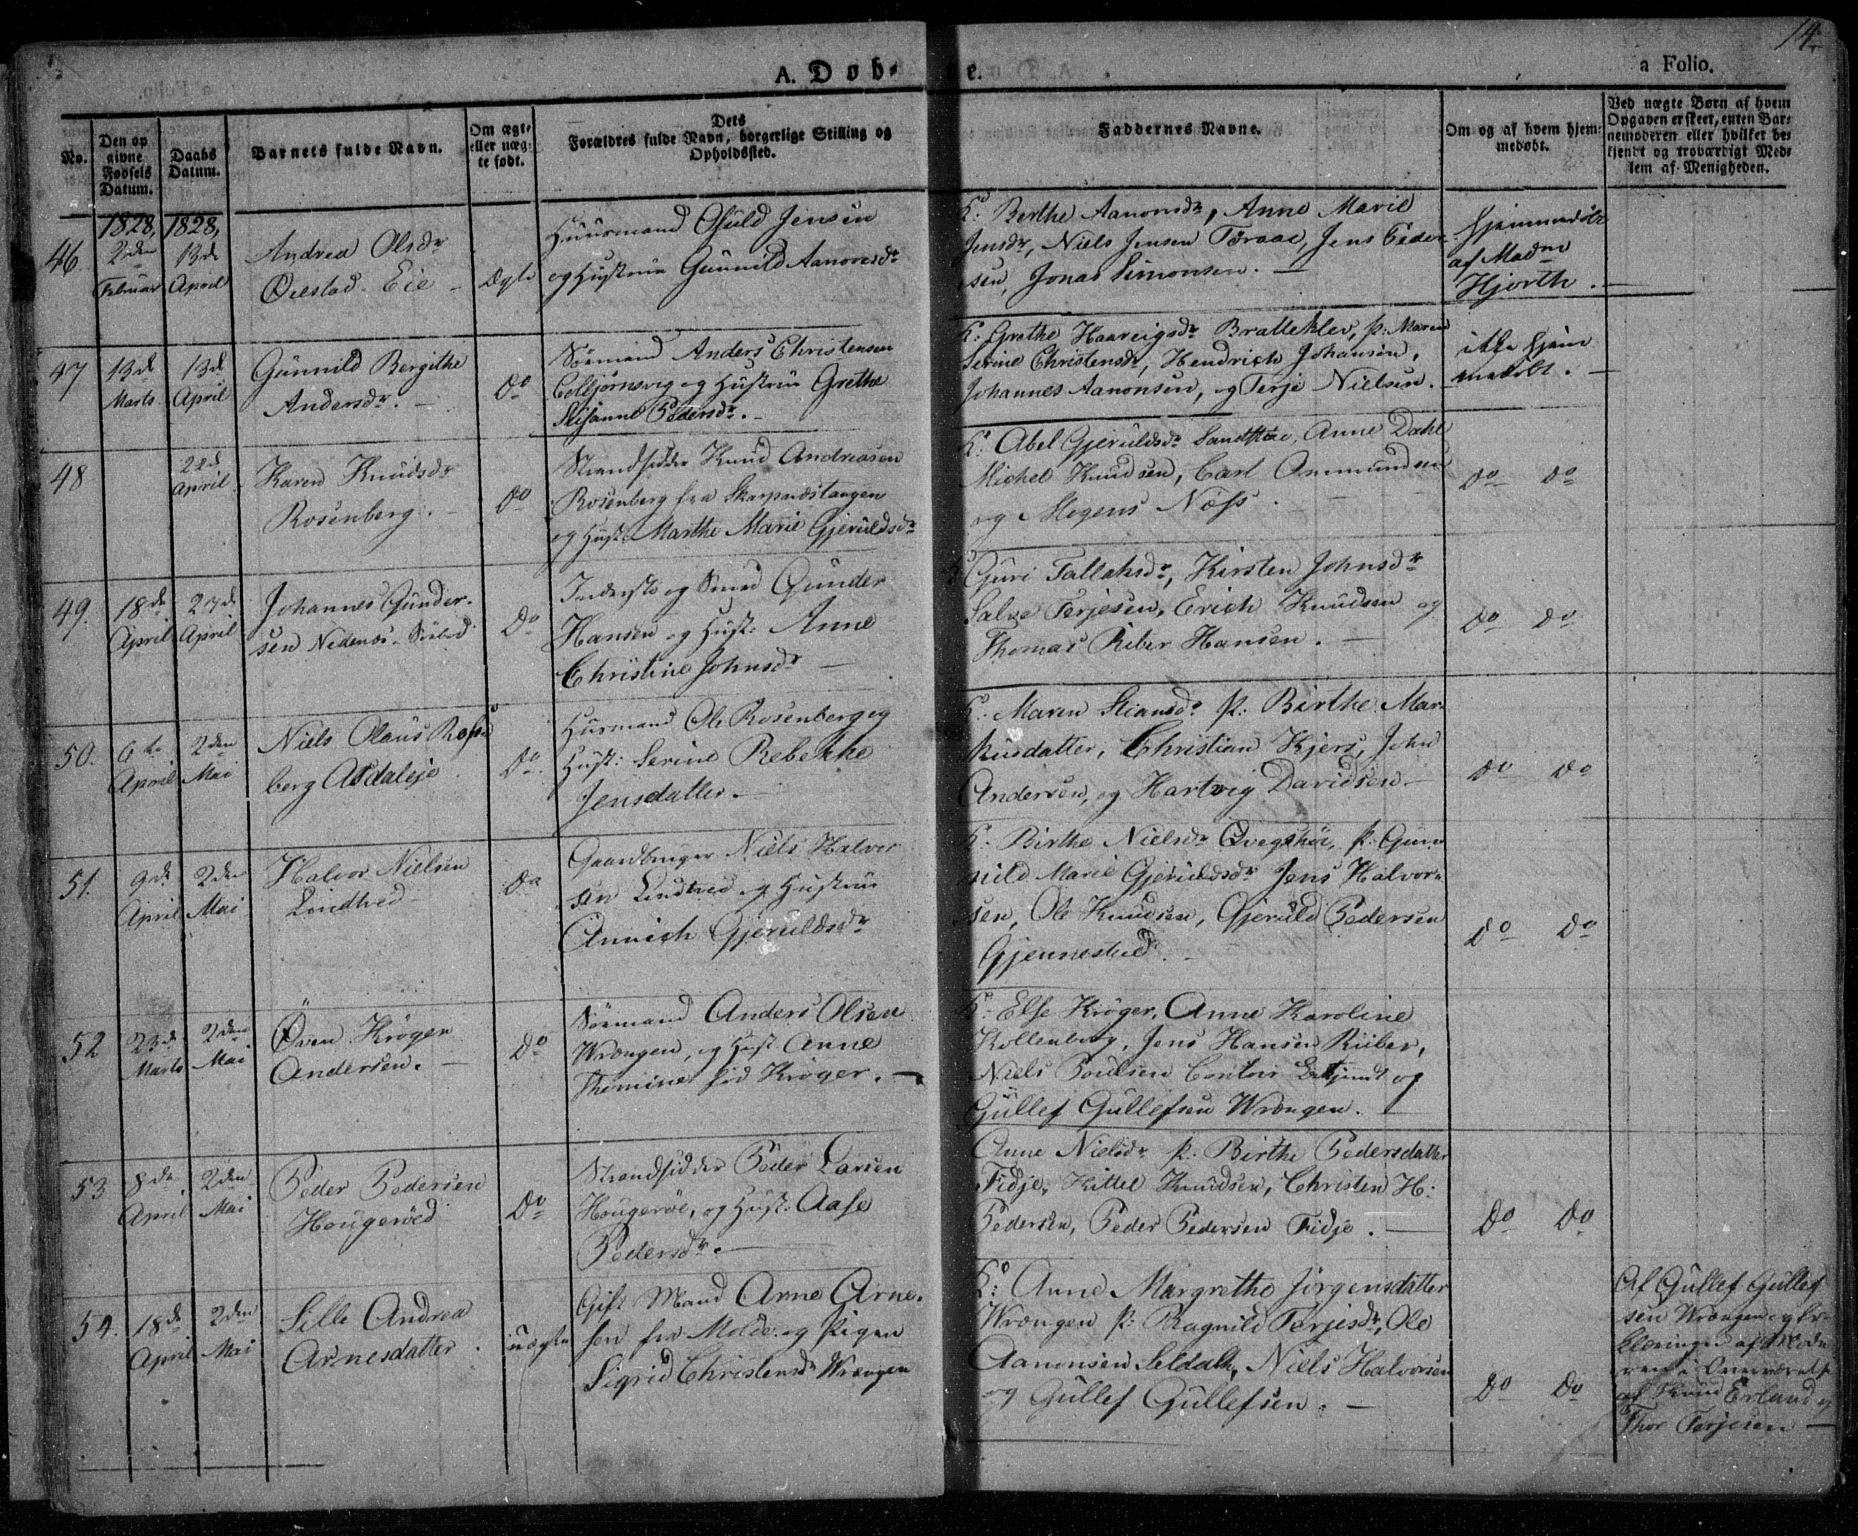 14.
A. Døb-
e.
a Folio.
No.
Den op
givne
Fødsels
Datum.
Daabs
Datum.
Barnets fulde Navn.
Om ægte
eller uæg-
te født.
Dets
Forældres fulde Navn, borgerlige Stilling og
Opholdssted.
Faddernes Navne.
Om og af hvem hjem-
medøbt.
Ved uægte Børn af hvem
Opgaven er skeet, enten Bar-
nemoderen eller hvilket be-
kjendt og troværdigt Med-
lem af Menigheden.
1828, 1828,
46
2den
Februar
13de
April
Andrea Olsdr
Øiestad Eie
Ægte
Huusmand Oluld Jensen
og Hustrue Gunnild Aanonsdr
K: Berthe Aanonsdr, Anne Marie
Jensdr, Niels Jensen Toraae, Jens Peder-
sen, Jonas Simonsen. —
Hjemmedøbt
af Madm
Hjorth. —
47
13de
Marts
13de
April
Gunnild Bergithe
Andersdr. —
Do
Sømand Anders Christensen
Colbjørnsvig og Hustrue Grethe
Susanne Pedersdr. —
K: Grethe Haareigsdr Bratteklev, p: Maren
Serine Christensdr, Hendrich Johansen,
Johannes Aanonsen, og Terje Nielsen.
ikke hjem
medøbt. —
48
22de
April
Karen Knudsdr
Rosenberg. —
Do
Strandsidder Knud Andreasen
Rosenberg fra Skarpnæstangen
og Hust: Marthe Marie Gjeruldsdr
K: Abel Gjeruldsdr Sandstøe, Anne Dahl
Michel Knudsen, Carl Ommundsen
og Mogens Næss. —
Do Do
49.
18de
April
27de
April
Johannes Gunder-
sen Nedenes
Do
Inderste og Smed Gunder
Hansen og Hust: Anne
Christine Johnsdr —
K: Guri Tallaksdr, Kirsten Johnsdr
Salve Terjesen, Erich Knudsen og
Thomas Riber Hansen. —
Do Do
50.
6te
April
2den
Mai
Niels Olaus Rosen
berg Asdaleje
Do.
Husmand Ole Rosenberg og
Hust: Serine Rebekke
Jensdatter. —
K: Maren Stiansdr p: Birthe Mar-
kusdatter, Christian Kjers, John
Andersen, og Hartvig Davidsen —
Do Do
51.
9nde
April
2den
Mai
Halvor Nielsen
Lindtved —
Do
Gaardbruger Niels Halvor
sen Lindtved og Hustrue
Annich Gjeruldsdr
K: Birthe Nielsdr p: Gun
nild Marie Gjeruldsdr Jens Halvor-
sen, Ole Knudsen, Gjeruld Pedersen
Gjennestad. —
Do Do
52
23de
Marts
2den
Mai
Øven Krøger
Andersen. —
Do
Sømand Anders Olsen
Wrængen, og Hust Anne
Thomine fød Krøger. —
K: Else Krøger, Anne Karoline
Kollenborg, Jens Hansen Riiber,
Niels Poulsen Contoir Betjendt og
Gullef Gullefsen Wrængen. —
53
8de
April
2den
Mai
Peder Pedersen
Hougerøed
Do
Strandsidder Peder Larsen
Hougerøe, og Hust: Aase
Pedersdr. —
Anne Nielsdr p: Birthe Pedersdatter
Fidje, Kittel Knudsen, Christen H:
Pedersen, Peder Pedersen Fidje. —
Do Do
54.
18de
April
2den
Mai
Sille Andrea
Arnesdatter.
uægte
Gift Mand Arne Arne-
sen fra Molde og Pigen
Sigrid Christensdr Wrængen
K: Anne Margrethe Jørgensdatter
Wrængen p: Ragnild Terjesdr, Ole
Aanonsen Seldal, Niels Halvorsen
og Gullef Gullefsen. —
Do Do
Af Gullef Gullef
sen Wrængen og Er-
klæringen af Mode
ren i Overværelse
af Knud Erland og
Thor Terjesen —